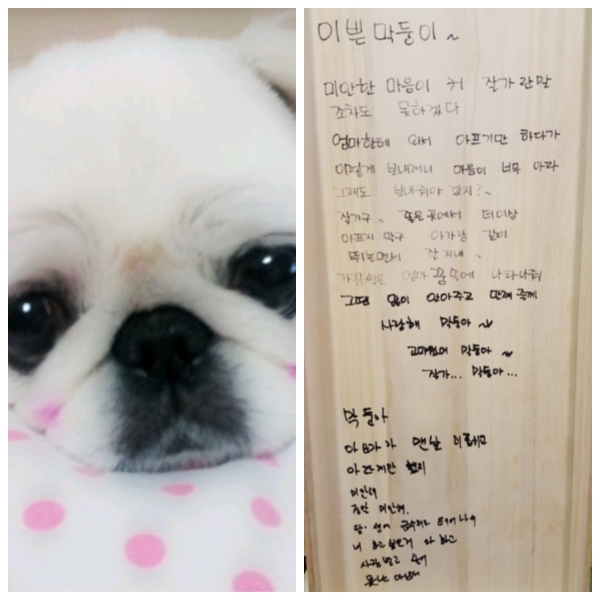 이쁜 막둥이~
미안한 마음이 커 잘가란말
조차도 못하겠다
엄마한테 와서 아프기만 하다가
이렇게 보내려니 마음이 너무 아파
그래도 보내줘야 겠지?~
잘가구~ 좋은곳에서 더이상
아프지 말구 아가랑 같이
뛰놀면서 잘 지내~
가끔씩은 엄마 꿈속에 나타나줘
그땐 많이 안아주고 만져줄께
사랑해 막둥아~
고마웠어 막둥아~
잘가... 막둥아...
막둥아
아빠가 맨날
미안해
정말 미안해.
하고 다 하고
사랑받고